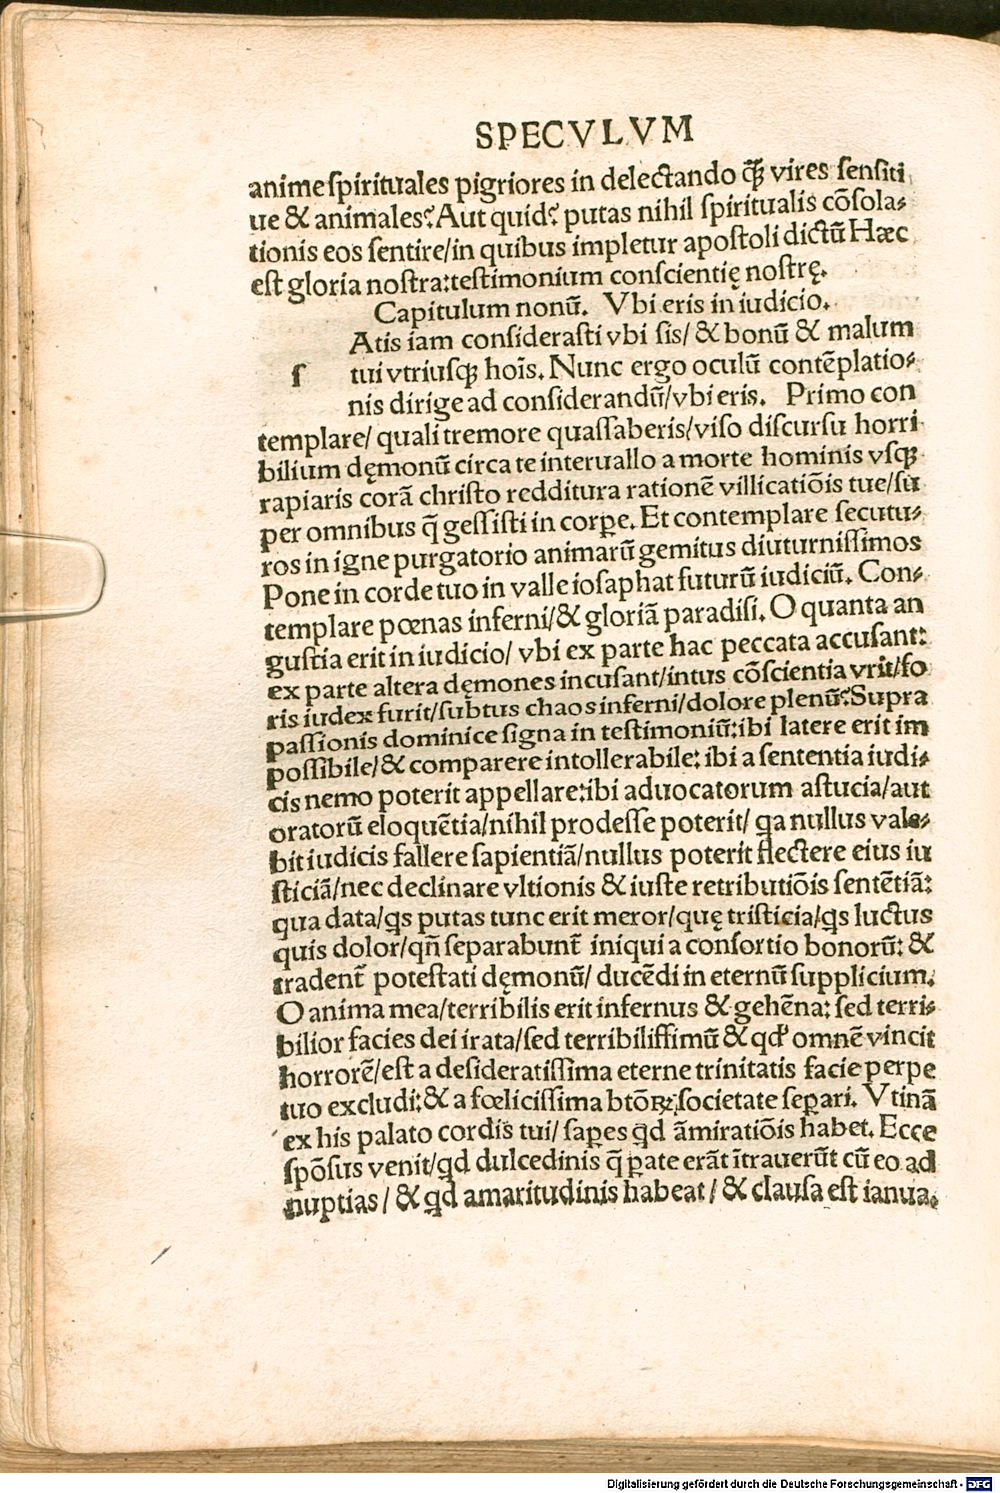 SPECVLVM
anime spirituales pigriores in delectando q̃ꝫ vires sensiti
ue & animales? Aut quid? putas nihil spiritualis cõsola-
tionis eos sentire/in quibus impletur apostoli dictũ Hæc
est gloria nostra: testimonium conscientię nostrę.
Capitulum nonũ. Vbi eris in iudicio.
Atis iam considerasti vbi sis/ & bonũ & malum
s tui vtriusqꝫ hoĩs. Nunc ergo oculũ contẽplatio-
nis dirige ad considerandũ/vbi eris. Primo con
templare/ quali tremore quassaberis/viso discursu horri
bilium dęmonũ circa te interuallo a morte hominis vsqꝫ
rapiaris corã christo redditura rationẽ villicatiõis tue/su
per omnibus q̃ gessisti in corꝑe. Et contemplare secutu-
ros in igne purgatorio animarũ gemitus diuturnissimos
Pone in corde tuo in valle iosaphat futurũ iudiciũ. Con-
templare pœnas inferni/& gloriã paradisi. O quanta an
gustia erit in iudicio/ vbi ex parte hac peccata accusant:
ex parte altera dęmones incusant/intus cõscientia vrit/fo
ris iudex furit/subtus chaos inferni/dolore plenũ? Supra
passionis dominice signa in testimoniũ: ibi latere erit im
possibile/& comparere intollerabile: ibi a sententia iudi-
cis nemo poterit appellare: ibi aduocatorum astucia/aut
oratorũ eloquẽtia/nihil prodesse poterit/ qa nullus vale-
bit iudicis fallere sapientiã/nullus poterit flectere eius iu
sticiã/nec declinare vltionis & iuste retributiõis sentẽtiã:
qua data/qs putas tunc erit meror/quę tristicia/qs luctus
quis dolor/qñ separabunt̃ iniqui a consortio bonorũ: &
tradent̃ potestati dęmonũ/ ducẽdi in eternũ supplicium.
O anima mea/terribilis erit infernus & gehẽna: sed terri-
bilior facies dei irata/sed terribilissimũ & qd' omnẽ vincit
horrorẽ/est a desideratissima eterne trinitatis facie perpe
tuo excludi: & a fœlicissima btõꝝ societate seꝑari. Vtinã
ex his palato cordis tui/ saꝑes qd ãmiratiõis habet. Ecce
spõsus venit/qd dulcedinis q̃ ꝑate erãt ĩtrauerũt cũ eo ad
nuptias/ & qd amaritudinis habeat/ & clausa est ianua.
Digitalisierung gefördert durch die Deutsche Forschungsgemeinschaft - DFG